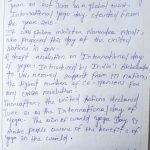 year on 21 Jun as a global event.
International yoga day started from
the year 2015
It was prime minister Narendra Modi
who proposed this day at the United
Nations in 2014.
A draft resolution on "International day
of yoga", introduced by India's Ambassador
to UN, received support from 177 nations,
the highest number of Co-sponsors for
any UNGA resolution.
Thereafter, the United nations declared
June 21 as the International day of
yoga. The aim of world yoga Day is
make people aware of the benefits of
yoga in the world.